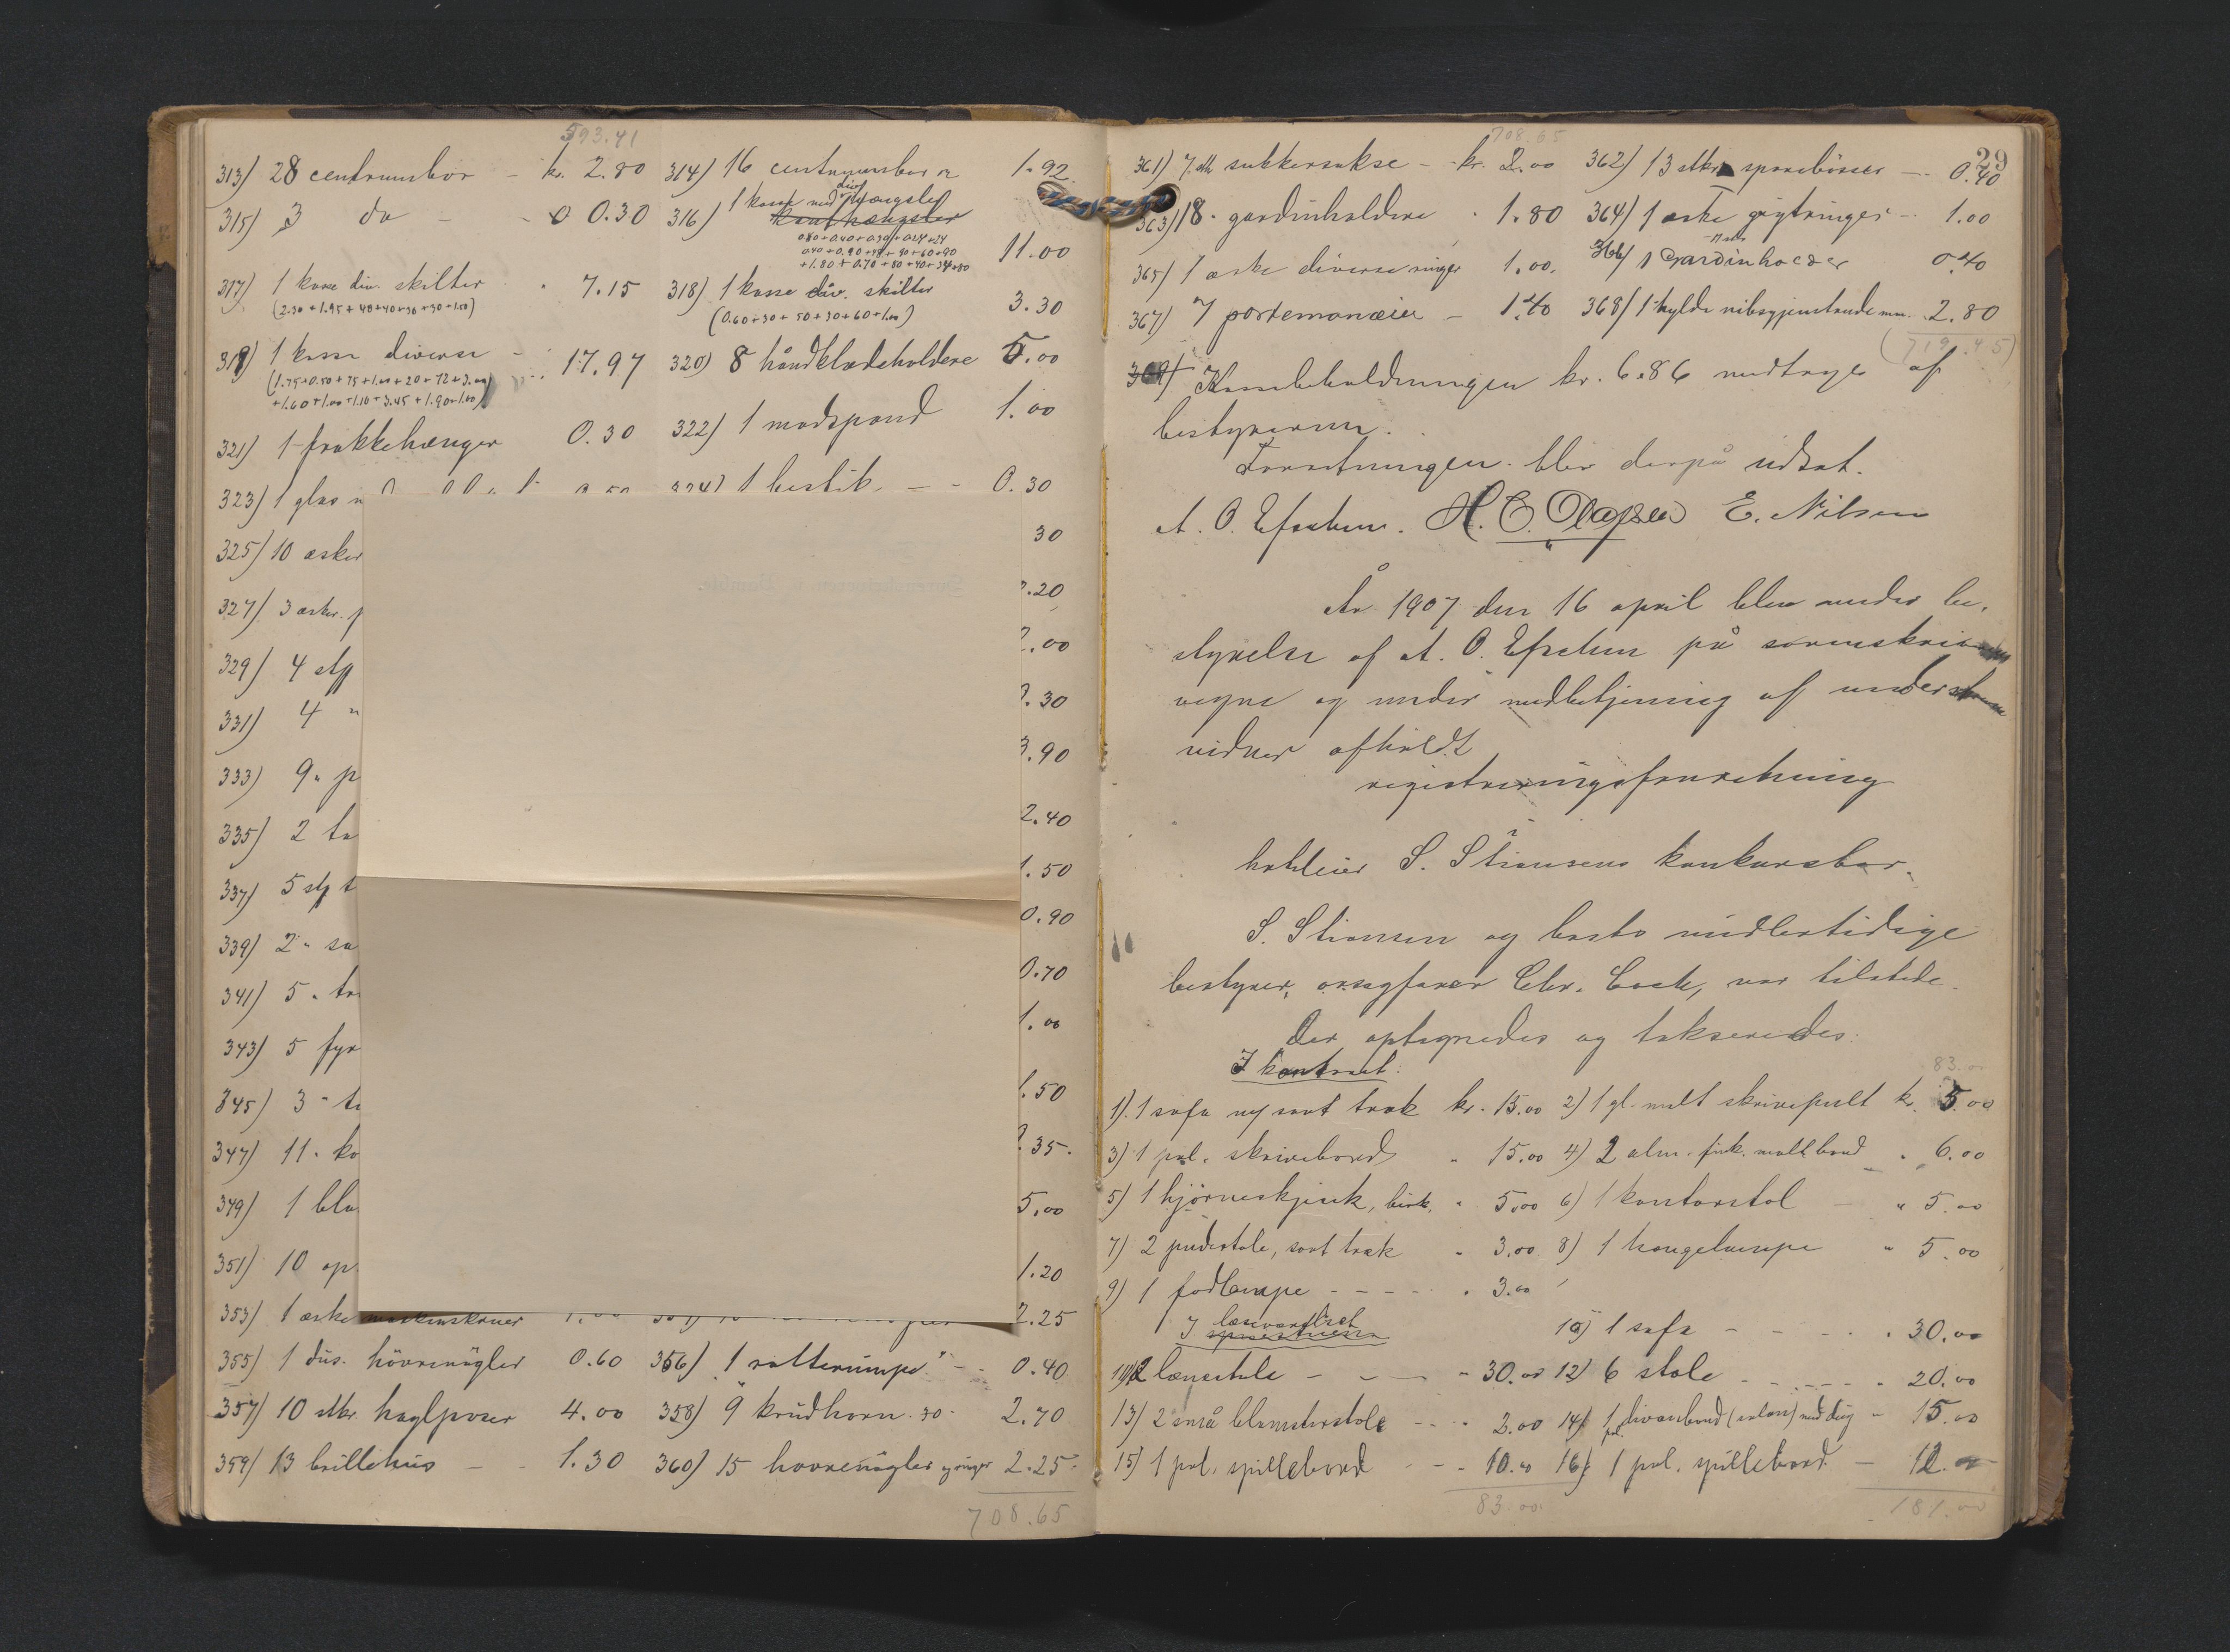 593.41
313) 28 centrumsbor - kr. 2.80 314) 16 centrumsbor 1.92
315) 3 do - - 0.30 316) 1 kasse med div hængsler
0.80+0.40+0.30+0.24+24
0.40+0.90+48+90+60+90
+1.80+0.70+80+40+34+80 11.00
317) 1 kasse div. skilter " 7.15 318) 1 kasse div. skilter
(2.30+1.95+40+40+30+30+1.50) (0.60+30+50+30+60+1.00) 3.30
319) 1 kasse diverse - 17.97 320) 8 håndklædeholdere 5.00
(1.75+0.50+75+1.00+20+72+3.00
+1.60+1.00+1.10+3.45+1.90+1.00)
321) 1 frakkehænger 0.30 322) 1 madspand 1.00
323) 1 glas 324) 1 bestik - - 0.30
325) 10 æsker 30
327) 3 æsker .20
329) 4 stk .00
331) 4 " .30
333) 9 " .90
335) 2 2.40
337) 5 stk 1.50
339) 2 " 0.90
341) 5 " 0.70
343) 5 1.00
345) 3 " 1.50
347) 11 " .35
349) 1 5.00
351) 10 1.20
353) 1 æske maskinskruer 2.25
355) 1 dus. hövrenögler 0.60 356) 1 rotterumpe - - 0.40
357) 10 stkr. haglposer 4.00 358) 9 krudhorn 30 2.70
359) 13 brillehus - - 1.30 360) 15 hovrenögler 2.25
708.65
708.65
29
361) 7 stk sukkersakse - kr. 2.00 362) 13 stkr sparebösser - 0.40
363) 18 " gardinholdere " 1.80 364) 1 æske gigtringer - 1.00
365) 1 æske diverse ringer 1.00 366) 1 Gardinholder 0.40
367) 7 portemonæier - 1.40 368) 1 hylde nibsgjenstande mm. 2.80
(719.45)
369) Kassebeholdningen kr. 6.86 modtoges af
bestyreren.
Forretningen blev derpå udsat.
A. O. H. E. Olafsen E. Nilsen
År 1907 den 16 april blev under be-
styrelse af A. O. på sorenskriverens
vegne og under medbetjening af understående
vidner afholdt
registreringsforretning
i
hotleier S. Stiansens konkursbo.
S. Stiansen og boets midlertidige
bestyrer, orsagfører Chr. Cock, var tilstede.
Der optegnedes og takseredes:
I kontoret:
83.00
1) 1 sofa ny sort træk kr. 15.00 2) 1 gl. malt skrivepult kr. 5.00
3) 1 pol. skrivebord " 15.00 4) 2 alm. firk. malt bord " 6.00
5) 1 hjörneskjænk, birk. " 5.00 6) 1 kontorstol - " 5.00
7) 2 pudestole, sort træk " 3.00 8) 1 hængelampe " 5.00
9) 1 fodlampe - - - - " 3.00
I læseværelset 10) 1 sofa - - - " 30.00
11) 2 lænestole - - - " 30.00 12) 6 stole - - - - " 20.00
13) 2 små blomsterstole - - " 2.00 14) 1 pol. divanbord (salon) med dug " 15.00
15) 1 pol. spillebord - - 10.00 16) 1 pol. spillebord - 12.00
83.00 181.00